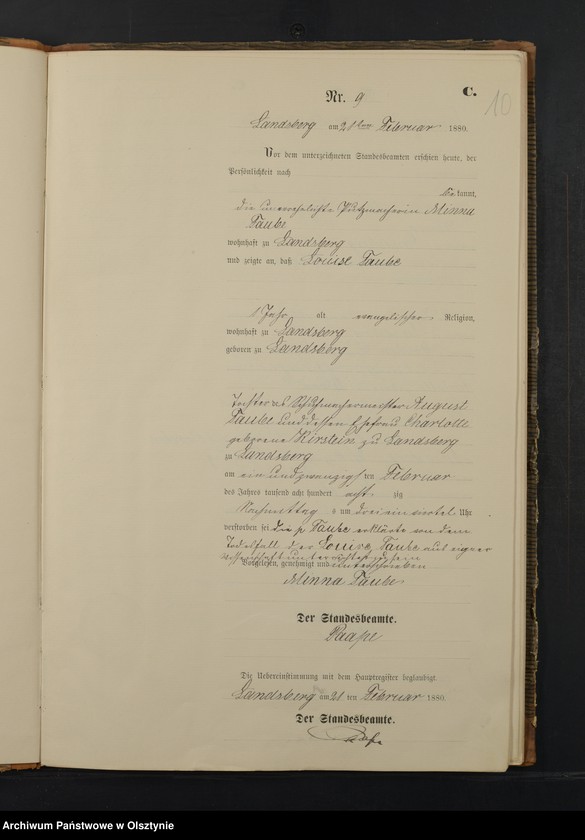 C.
10
Nr. 9
Landsberg am 21ten Februar 1880.
Vor dem unterzeichneten Standesbeamten erschien heute, der
Persönlichkeit nach
bekannt,
die unverehelichte Putzmacherin Minna
Taube
wohnhaft zu Landsberg
und zeigte an, daß Louise Taube
1 Jahr alt evangelischer Religion,
wohnhaft zu Landsberg
geboren zu Landsberg
Tochter des Schuhmachermeister August
Taube und dessen Ehefrau Charlotte
geborene Kirstein zu Landsberg
zu Landsberg
am ein und zwanzigsten Februar
des Jahres tausend acht hundert acht zig
Nachmittags um drei ein viertel Uhr
verstorben sei. Die p Taube erklärte von dem
Todesfall der Louise Taube aus eigner
Wissenschaft unterrichtet zu sein
Vorgelesen, genehmigt und unterschrieben
Minna Taube
Der Standesbeamte.
Paape
Die Uebereinstimmung mit dem Hauptregister beglaubigt.
Landsberg am 21 ten Februar 1880.
Der Standesbeamte.
Paape
Archiwum Państwowe w Olsztynie